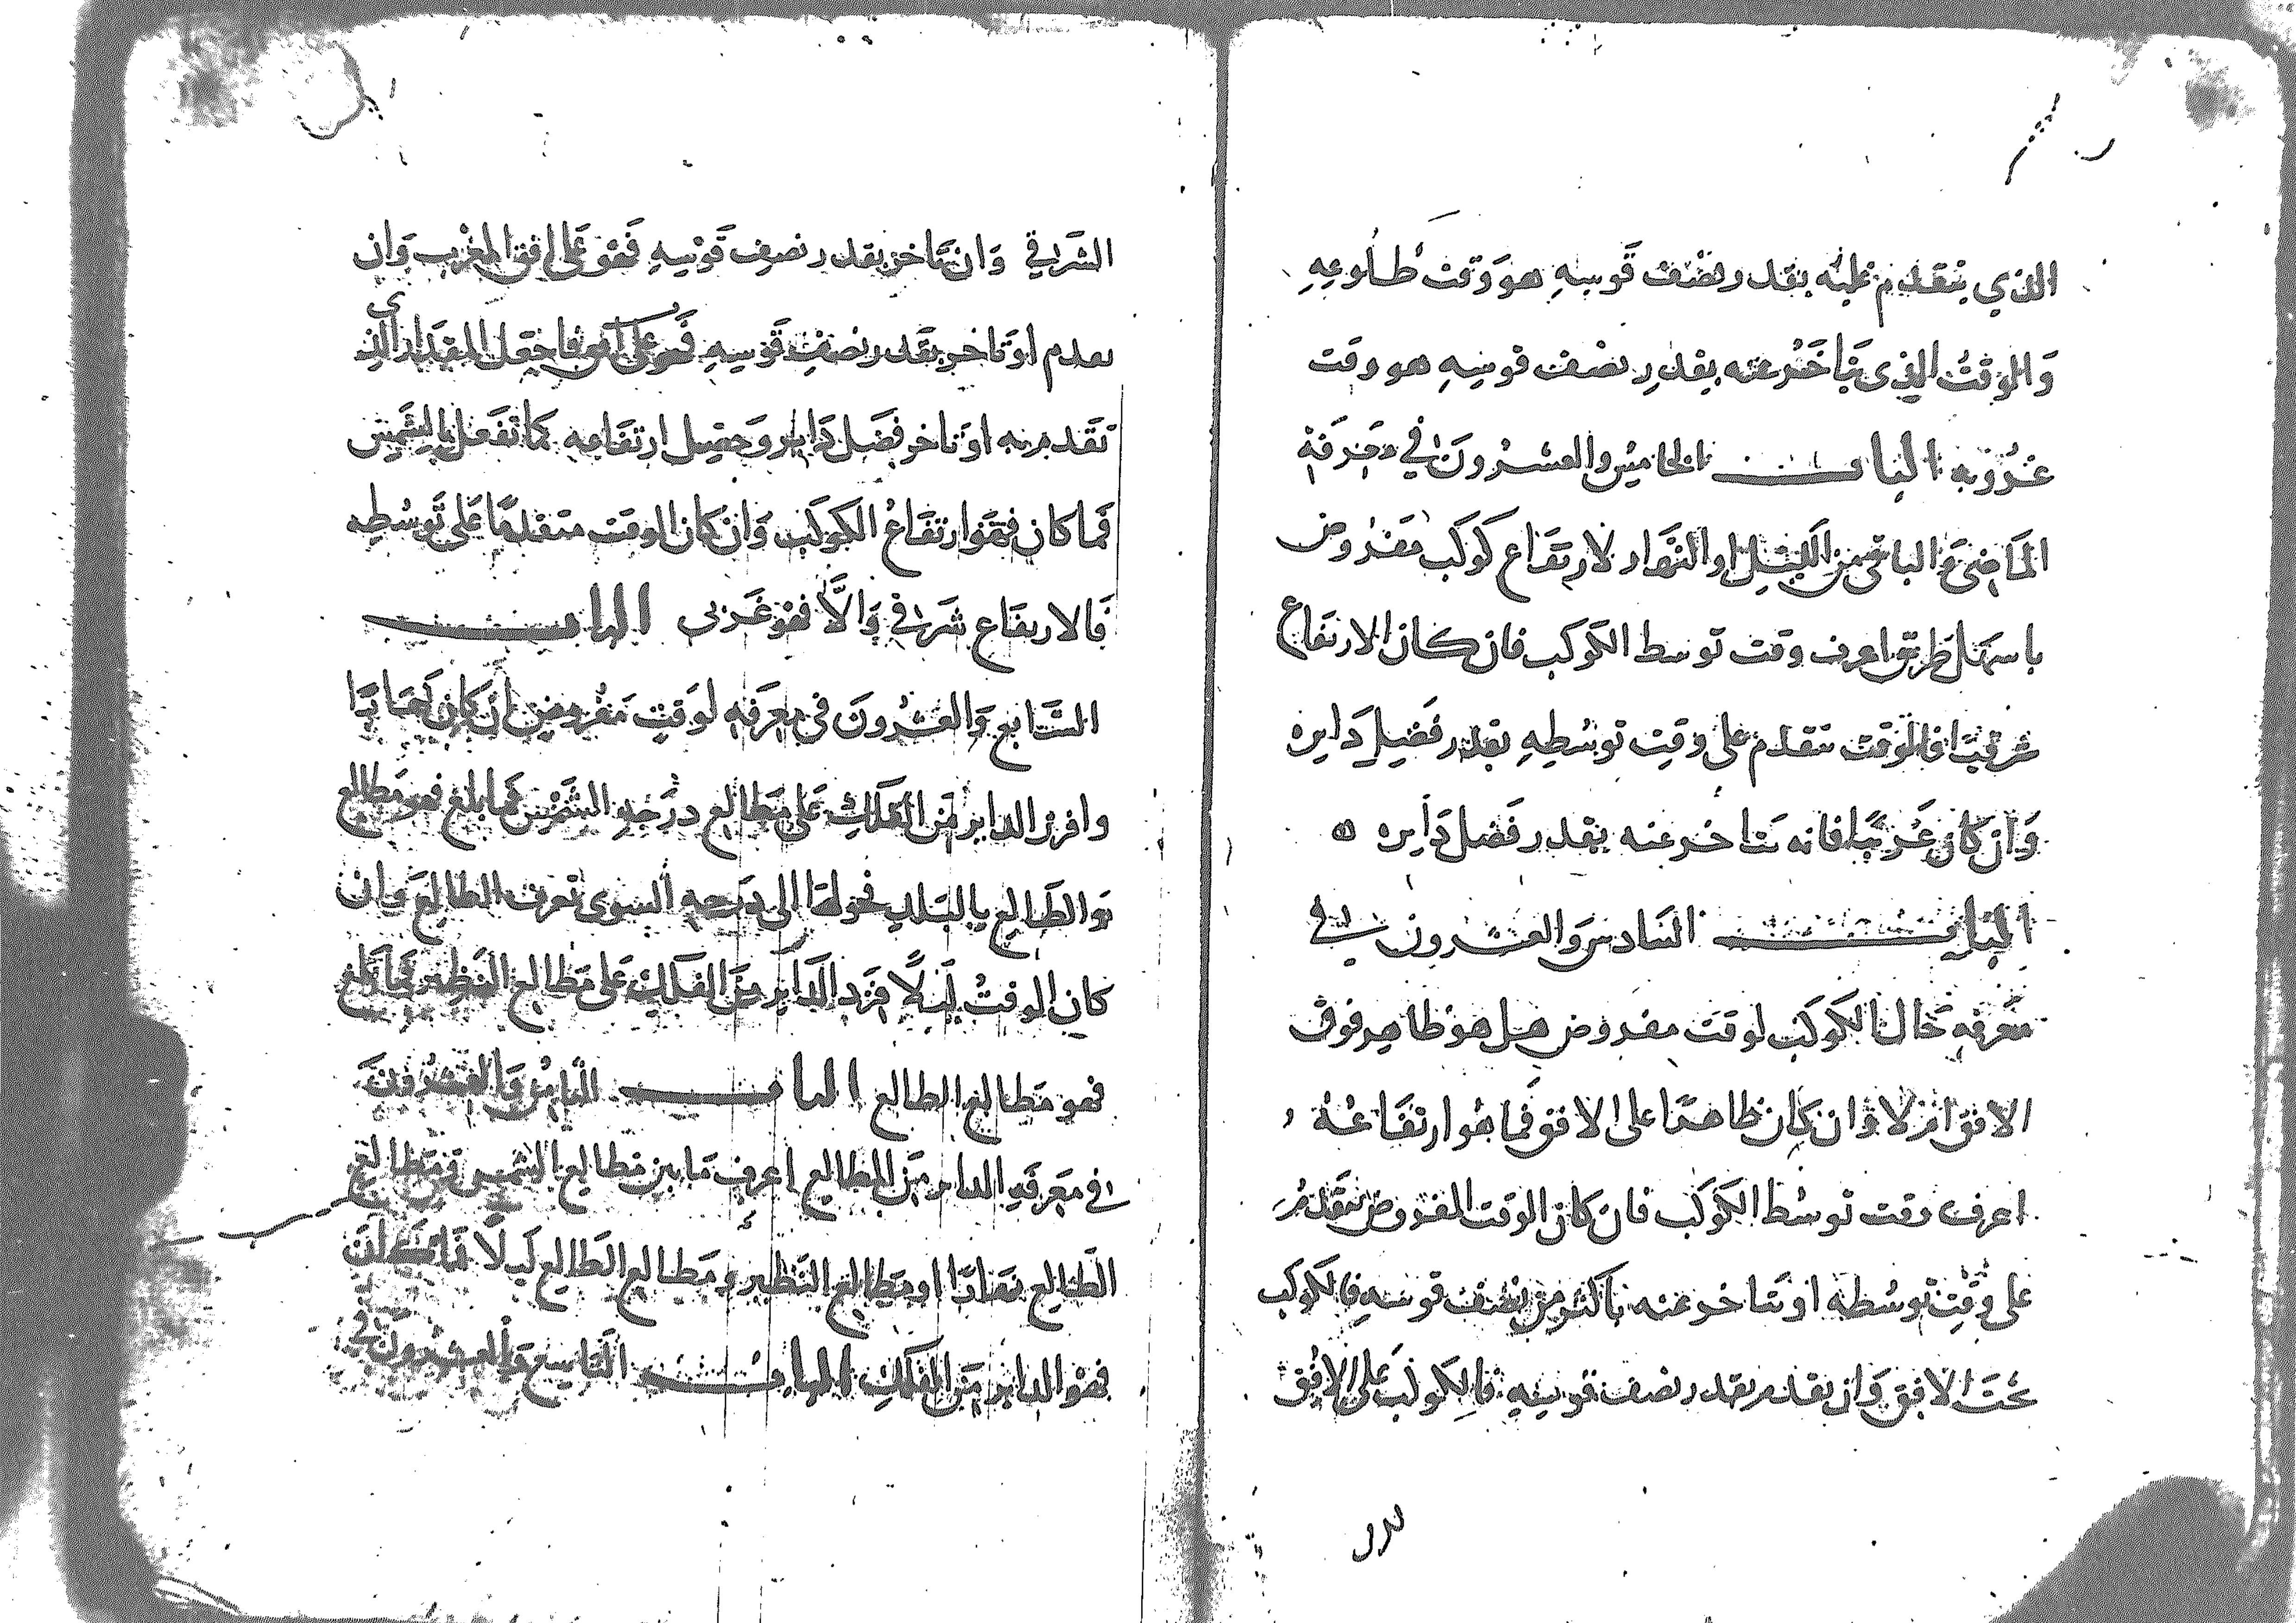 الذي يتقدم عليه بقدر نصف قوسه هو وقت طلوعه
والوقت الذي يتاخر عنه بقدر نصف قوسه هو وقت
غروبه الباب الخامس والعشرون في معرفة
الماضي والباقي من الليل او النهار لارتفاع كوكب مفروض
باسهل طريق اعرف وقت توسط الكوكب فان كان الارتفاع
شرقيا فالوقت متقدم على وقت توسطه بقدر فضل دايره
وان كان غربيا فانه يتاخر عنه بقدر فضل دايره ه
الباب السادس والعشرون في
معرفه حال الكوكب لوقت مفروض هل هو ظاهر فوق
الافق ام لا وان كان ظاهرا على الافق فما هو ارتفاعه
اعرف وقت توسط الكوكب فان كان الوقت المفروض يتقدم
على وقت توسطه او يتاخر عنه باكثر من نصف قوسه فالكوكب
تحت الافق وان تقدم بقدر نصف قوسه فالكوكب على الافق
الشراقي وان تاخر بقدر نصف قوسه فهو على افق المغرب وان
تقدم او تاخر بقدر نصف قوسه فهو على فاجعل المقدار الذي
تقدم به او تاخر فضل داير وحصل ارتفاعه كما تفعل بالشمس
فما كان فهو ارتفاع الكوكب وان كان الوقت متقدما على توسطه
فالارتفاع شراقي والا فهو غربي الباب
السابع والعشرون في معرفه لوقت مفروض ان كان نهارا
وافرز الداير من الفلك على مطالع درجه الشمس فما بلغ فهو مطالع
والطالع بالبلد فحولها الى درجه السوى تعرف الطالع وان
كان الوقت ليلا فزد الداير من الفلك على مطالع النظير فما بلغ
فهو مطالع الطالع الباب الثامن والعشرون
في معرفه الداير من المطالع اعرف ما بين مطالع الشمس ومطالع
الطالع نهارا او مطالع النظير ومطالع الطالع ليلا فما كان
فهو الداير من الفلك الباب التاسع والعشرون في